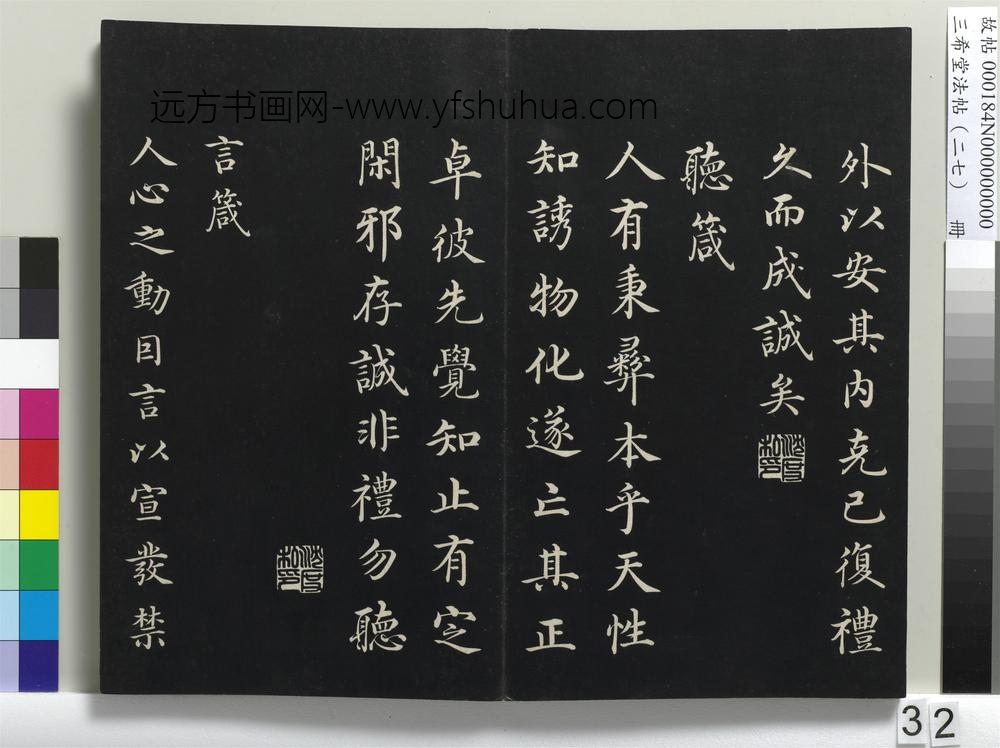 外以安其内克己復禮
久而成誠矣
聽箴
人有秉彝本乎天性
知誘物化遂亡其正
卓彼先覺知止有定
閑邪存誠非禮勿聽
言箴
人心之動因言以宣發禁
远方书画网-www.yfshuhua.com
故帖 000184N000000000
三希堂法帖（二七） 冊
32